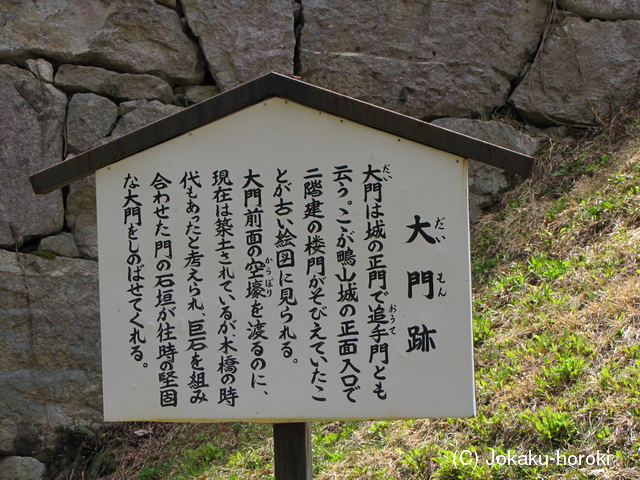 大門跡
だいもん
大門は城の正門で追手門とも
だい
おうて
云う。ここが鴫山城の正面入口で
二階建の楼門がそびえていたこ
とが古い絵図に見られる。
大門前面の空壕を渡るのに、
からぼり
現在は築土されているが、木橋の時
代もあったと考えられ、巨石を組み
合わせた門の石垣が往時の堅固
な大門をしのばせてくれる。
(C) Jokaku-horoki